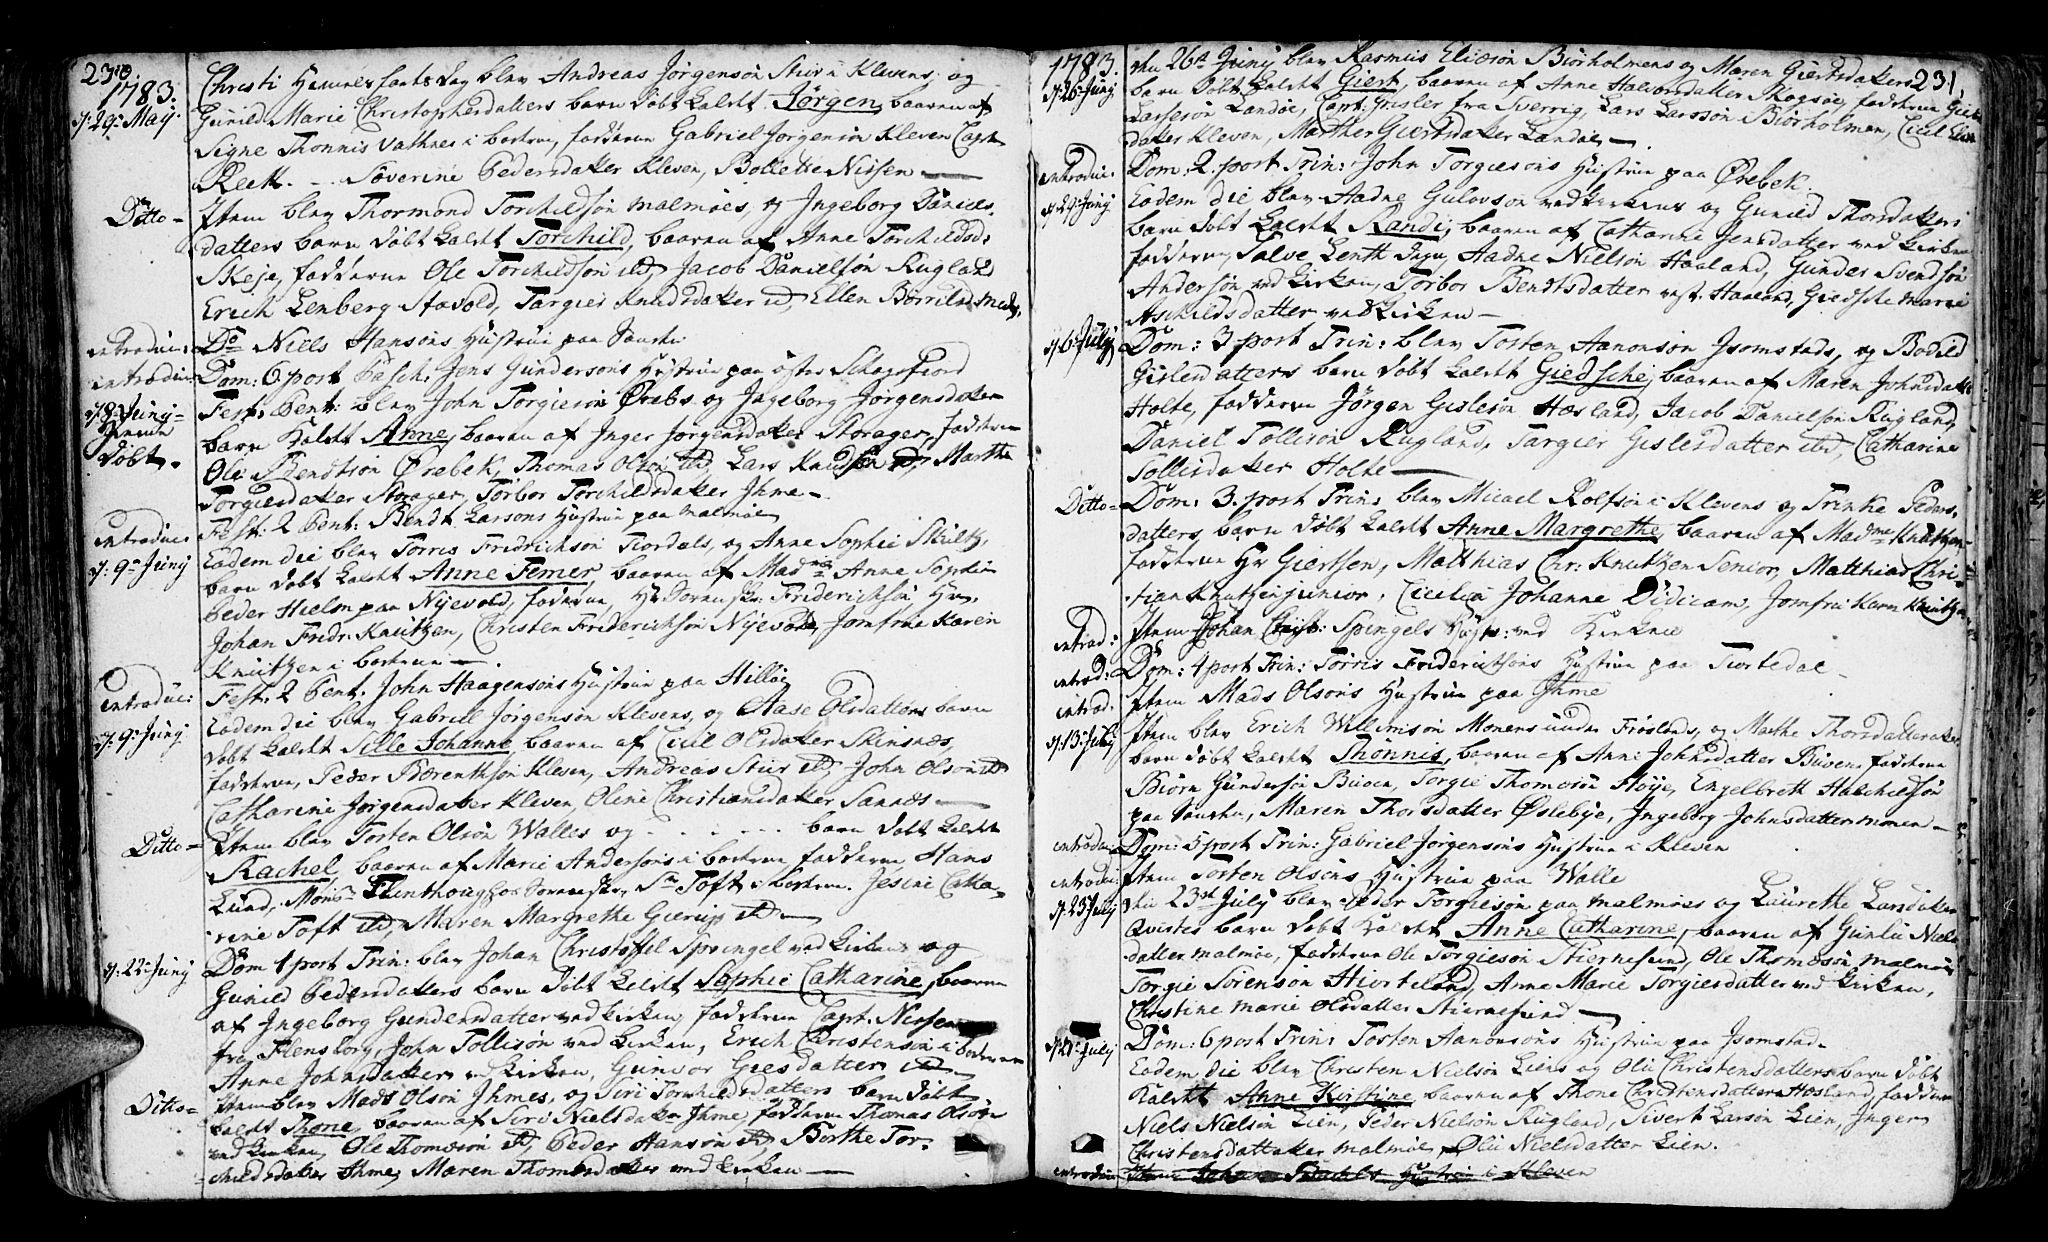 230
1783.
d: 29: Maÿ.
Christi Himmelfarts dag blev Andreas Jörgensön Stur i Klevens, og
Gunild Marie Christophersdatters barn döbt kaldt Jörgen, baaren af
Signe Thonnis Vathnes i hosten, fadderne Gabriel Jörgensön Kleven Capt
Reett. - - Söverine Pedersdatter Kleven, Bollette Nissen
Ditto - Item blev Thormond Torchildsön malmöes, og Ingeborg Daniels-
datters barn döbt kaldt Torchild, baaren af Anne Torchildsd:
Skeje, fadderne Ole Torchildsön ibd, Jacob Danielsön Rugland
Erich Lenberg Stavold, Targier Knudsdatter ibd, Ellen
introduc: Do Niels Hansöns Hustrue paa
introduc: Dom: 6. post Pasch: Jens Gundersöns Hustrue paa öster Skogsfiord
d. 8. Junÿ - Fest: Pent: blev John Torgiesön Örebs og Ingeborg Jörgensdatters
döbt. barn kaldt Anne, baaren af Inger Jörgensdatter Storager, fadderne
Ole Bendtson Örebek, Thomas Olsön ibd, Lars Knudsen ibd, Marthe
Torgiesdatter Storager, Torbor Torchildsdatter Ihme
introduc: Fest: 2 Pent: Bendt Larsöns Hustrue paa malmöe
d. 9. Junÿ Eadem die blev Torris Fridrichsön Tiordals, og Anne Sophie
barn döbt kaldt Anne Femer, baaren af Madme Anne Sophie
Peder Hielm paa Nÿevold, fadderne, Friderichsön
Johan Fredr: Knutzen, Christen Friderichsön Nÿevold, Jomfrue Karen
Knutzen i
introduc: Fest: 2 Pent. John Haagensöns Hustrue paa Hillöe
d. 9. Junÿ Eadem die blev Gabriel Jörgensön Klevens, og Aase Olsdatters barn
döbt kaldt Sille Johanne, baaren af Cicil Olsdatter Skinsnæs,
fadderne, Peder Bærenthsön Kleven, Andreas Stur ibd, John Olsön ibd
Catharine Jörgensdatter Kleven, Oline Christiansdatter Sanæs
Ditto - Item blev Torsten Olsön Walles og - - - - - barn döbt kaldt
Rachel, baaren af Marie Andersöns i fadderne Hans
Lund, Monsr Flinthoug Sr Toft i Jesine Catha-
rine Toft ibd, Maren Margrethe Gierup ibd
d. 22. Junÿ Dom 1 post Trin: blev Johan Christoffel Springel ved kirken og
Gunild Pedersdatters barn döbt kaldt Sophie Catharine, baaren
af Ingeborg Gundersdatter ved kirken, fadderne Capt. Nissen
fra Flensborg, John Tollisön ved kirken, Erich Christensön i
Anne Johnsdatter ved kirken, Gunvor Giesdatter ibd
Ditto - Item blev Mads Olsön Ihmes, og Siri Torchildsdatters barn döbt
kaldt Thone, baaren af Siri Nielsdatter Ihme, fadderne Thomas Olsön
ved kirken, Ole Thomesön ibd, Peder Hansön ibd, Borthe Tor-
childsdatter Ihme, Maren Thomesdatter ved kirken
231
1783.
d. 26. Junÿ den 26de Junÿ blev Rasmus Eliæsön Biörholmens og Maren Giertsdatters
barn döbt kaldt Giert, baaren af Anne Halvorsdatter Skogsöe, fadderne
Larsesön Landöe, Capt: Grisler fra Sverrig, Lars Larssön Biörholmen, Cicil
datter Kleven, Marthe Giertsdatter Landöe
introduc: Dom: 2. post Trin: John Torgiesöns Hustrue paa Örebek.
d. 29. Junÿ Eadem die blev Aadne Gulovson ved kirkens og Gunild Thorsdatters
barn döbt kaldt Randi, baaren af Catharine Jensdatter ved kirken
fadderne, Salve Aadne Nielsön Haaland, Gunder Svendsön
Andersön ved kirken, Torbor Bendtsdatter vest. Haaland, Giedsche Marie
Aschildsdatter ved kirken
d. 6. Julÿ Dom: 3 post Trin: blev Torsten Aanonsön Isomstads, og Bodild
Gislesdatters barn döbt kaldt Giedsche, baaren af Maren Johnsdatter
Holte, fadderne Jörgen Gislesön Hæsland, Jacob Danielsön Rugland,
Daniel Tollisön Rugland, Targier Gislesdatter ibd, Catharine
Tollisdatter Holte
Ditto - Dom: 3. post Trin: blev Micael Rolfsön i Klevens og Trinke Peders-
datters, barn döbt kaldt Anne Margrethe, baaren af Madme Knutzen
fadderne Hr Giertsen, Matthias Chr: Knutzen Senior, Matthias Chri-
stian Knutzen junior, Cicilia Johanne Didicam, Jomfrue Karen Knutzen
introd: Item Johan Christ: Spingels Hust: ved Kirken
introd: Dom: 4 post Trin: Torris Friderichsöns Hustrue paa Tiortedal
introd. Item Mads Olsöns Hustrue paa Ihme
d. 13. Julÿ Item blev Erich Willumsön Monens under Fröslands, og Marthe Thorsdatters
barn döbt kaldt Thonnis, baaren af Anne Johnsdatter Buöen, fadderne
Biörn Gundersön Buöen, Torgie Thomesön Höÿe, Engelbrett Halchildsön
paa Maren Thorsdatter Öslebÿe, Ingeborg Johnsdatter monen
introduc Dom: 5 post Trin: Gabriel Jörgensöns Hustrue i Kleven
introduc: Item Torsten Olsöns Hustrue paa Walle
d. 23 Julÿ den 23de Julÿ blev Peder Torgiesön paa malmöes og Laurethe Larsdatter
Qvistes barn döbt kaldt Anne Catharine, baaren af Gunlu Niels-
datter malmöe, fadderne Ole Torgiesön Stiernesund, Ole Thomesön malmöe
Torgie Sörenson Hiorteland, Anne Marie Torgiesdatter ved kirken,
Christine Marie Olsdatter Stiernesund
d. 27. Julÿ Dom: 6 post Trin: Torsten Aanonsöns Hustrue paa Isomstad.
Eadem die blev Christen Nielsön Liens og Oliv Christensdatters barn döbt
kaldt Anne Kirstine, baaren af Thone Christensdatter Hæsland, fadderne
Niels Nielsön Lien, Peder Nielsön Rugland, Sivert Larsön Lien, Inger
Christensdatter malmöe, Oliv Nielsdatter Lien.
introduc Item Hustrue i Kleven